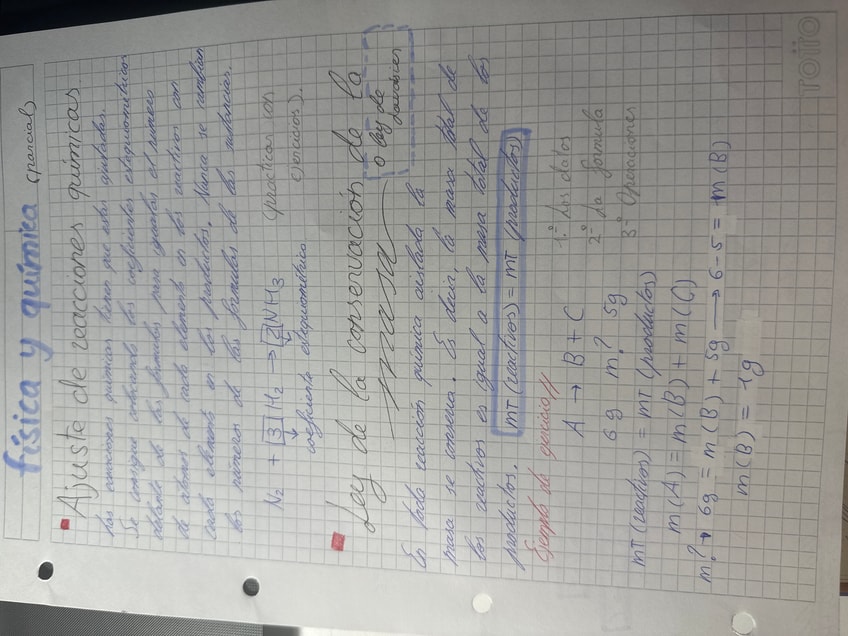 física y química (parcial)
Ajuste de reacciones químicas.
las reacciones químicas tienen que estar ajustadas.
Se consigue colocando los coeficientes estequiométricos
delante de las fórmulas para igualar el número
de átomos de cada elemento en los reactivos con
cada elemento en los productos. Nunca se cambian
los números de las fórmulas de las sustancias.
N₂ + 3 H₂ → 2 NH₃ (practicar con
ejercicios).
coeficiente estequiométrico
Ley de la conservación de la
masa
o ley de
Lavoisier
En toda reacción química aislada la
masa se conserva. Es decir, la masa total de
los reactivos es igual a la masa total de los
productos. mT (reactivos) = mT (productos)
Ejemplo de ejercicio//
A → B + C
6g m? 5g
1º Los datos
2º La formula
3º Operaciones
mT (reactivos) = mT (productos)
m(A) = m(B) + m(C)
m? → 6g = m(B) + 5g → 6-5 = m(B)
m(B) = 1g
TOTTO